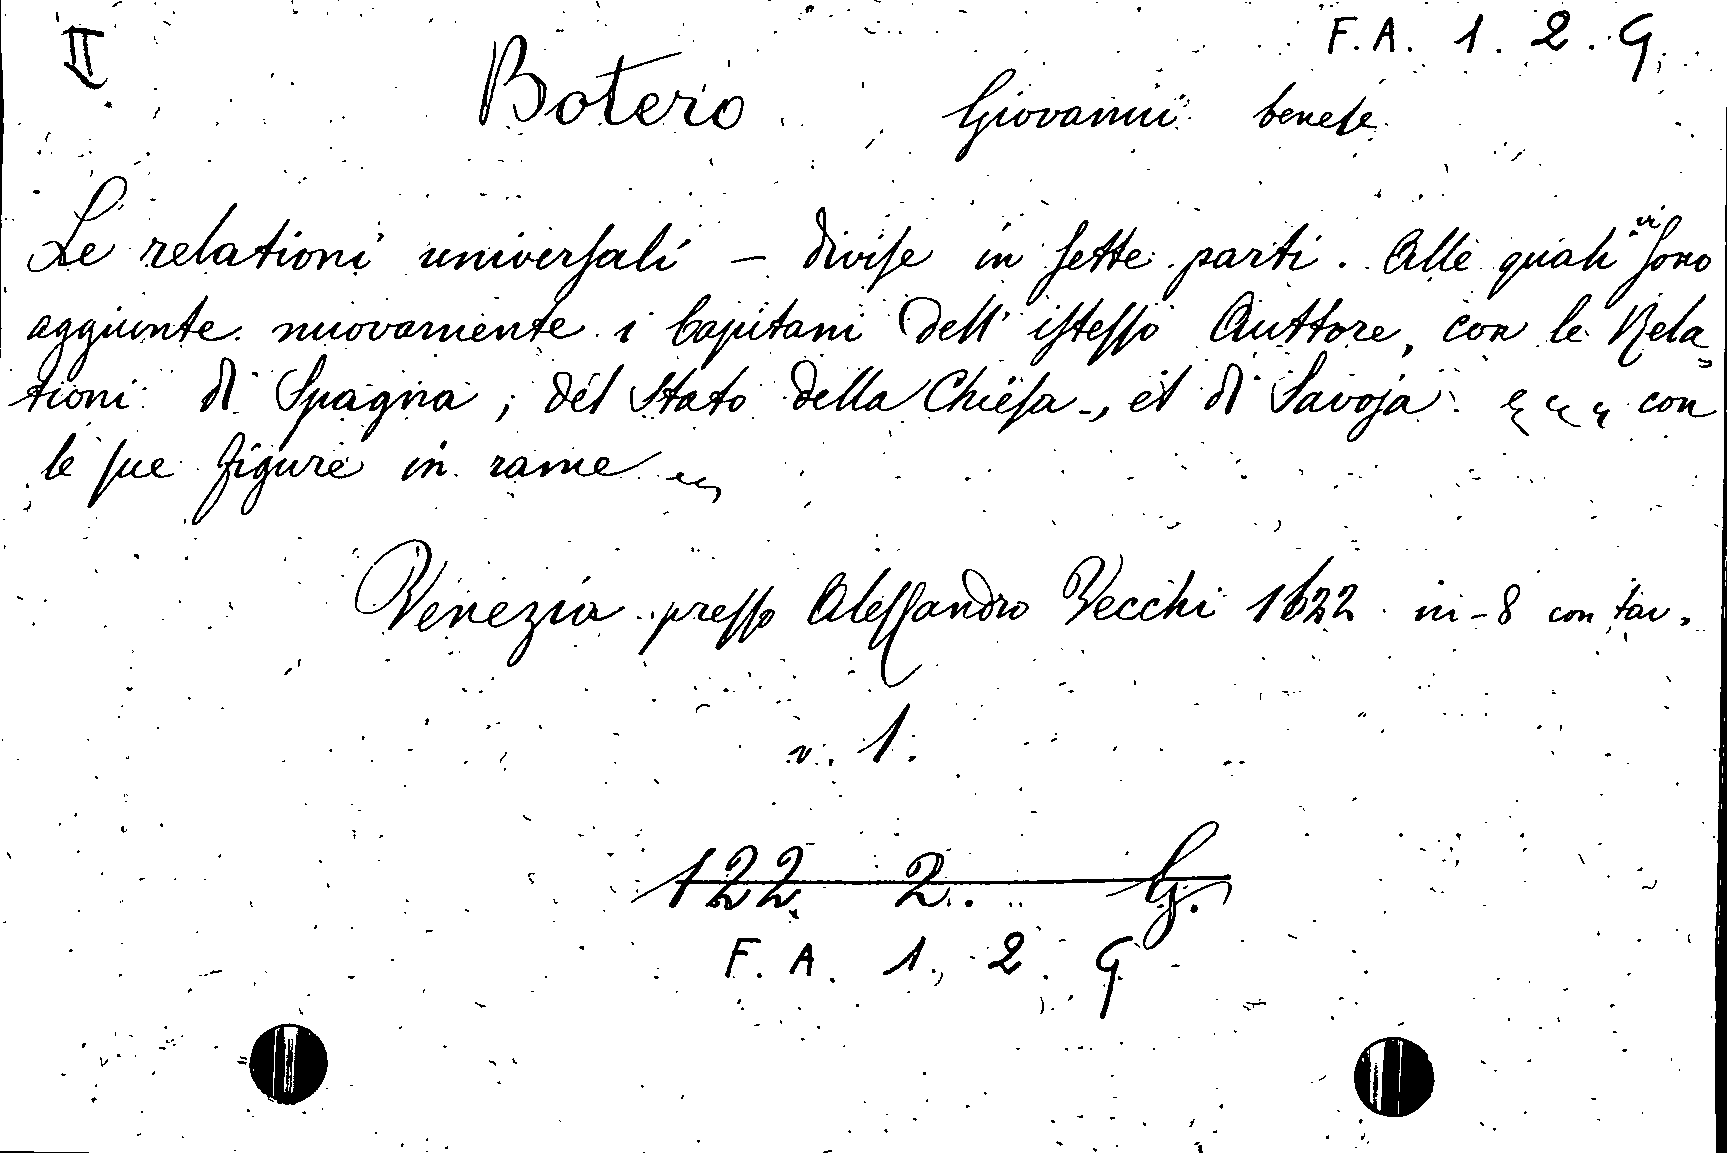 II
F.A. 1. 2. G.
Botero Giovanni benese
Le relationi universali – divise in sette parti. Alle quali vi sono
aggiunte nuovamente i Capitani dell' istesso Auttore, con le Rela-
tioni di Spagna, del Stato della Chiesa, et di Savoja. con
le sue figure in rame
Venezia presso Alessandro Vecchi 1622 in-8 con tav.
v. 1.
122. 2. G.
F. A. 1. 2. G